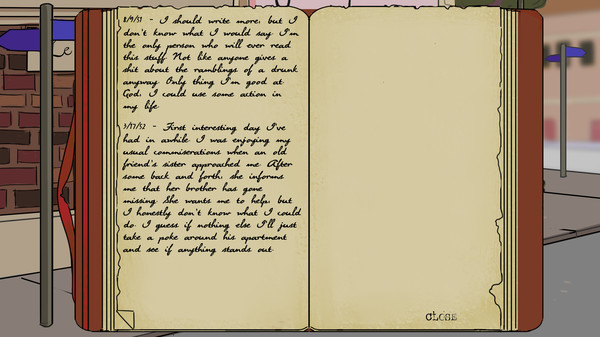 8/9/51 - I should write more, but I
don't know what I would say. I'm
the only person who will ever read
this stuff. Not like anyone gives a
shit about the ramblings of a drunk
anyway. Only thing I'm good at.
God, I could use some action in
my life.
3/17/52 - First interesting day I've
had in awhile. I was enjoying my
usual commiserations when an old
friend's sister approached me. After
some back and forth, she informs
me that her brother has gone
missing. She wants me to help, but
I honestly don't know what I could
do. I guess if nothing else I'll just
take a poke around his apartment
and see if anything stands out.
CLOSE